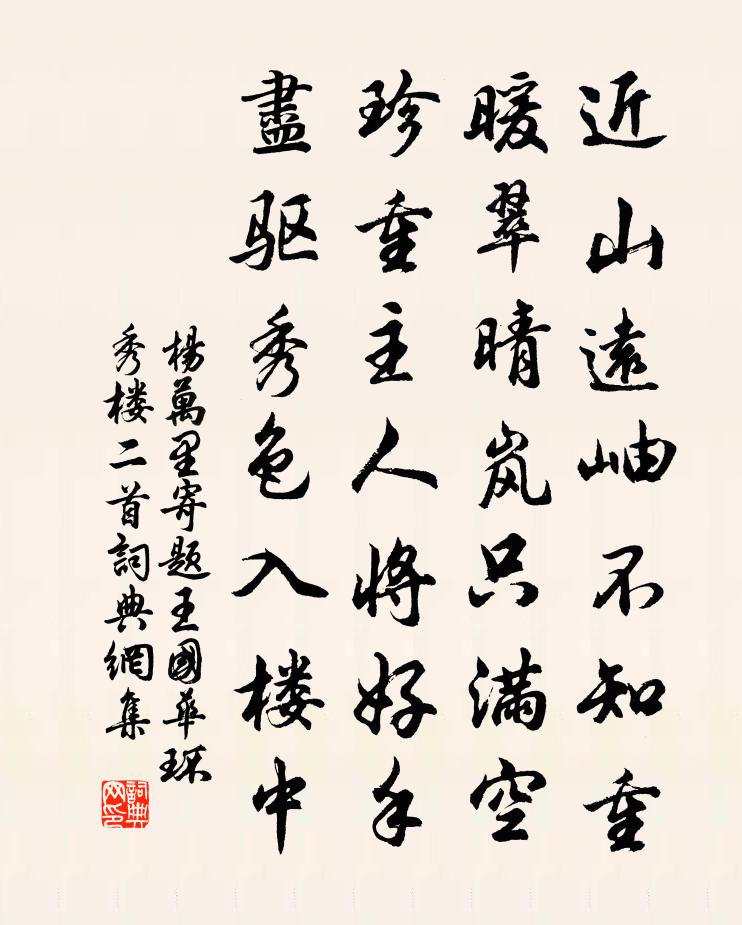 近山遠岫不知重
暖翠晴岚只满空
珍重主人將好手
盡驱秀色入楼中
楊萬里寄题王國華环
秀楼二首詞典網集
詞典网印